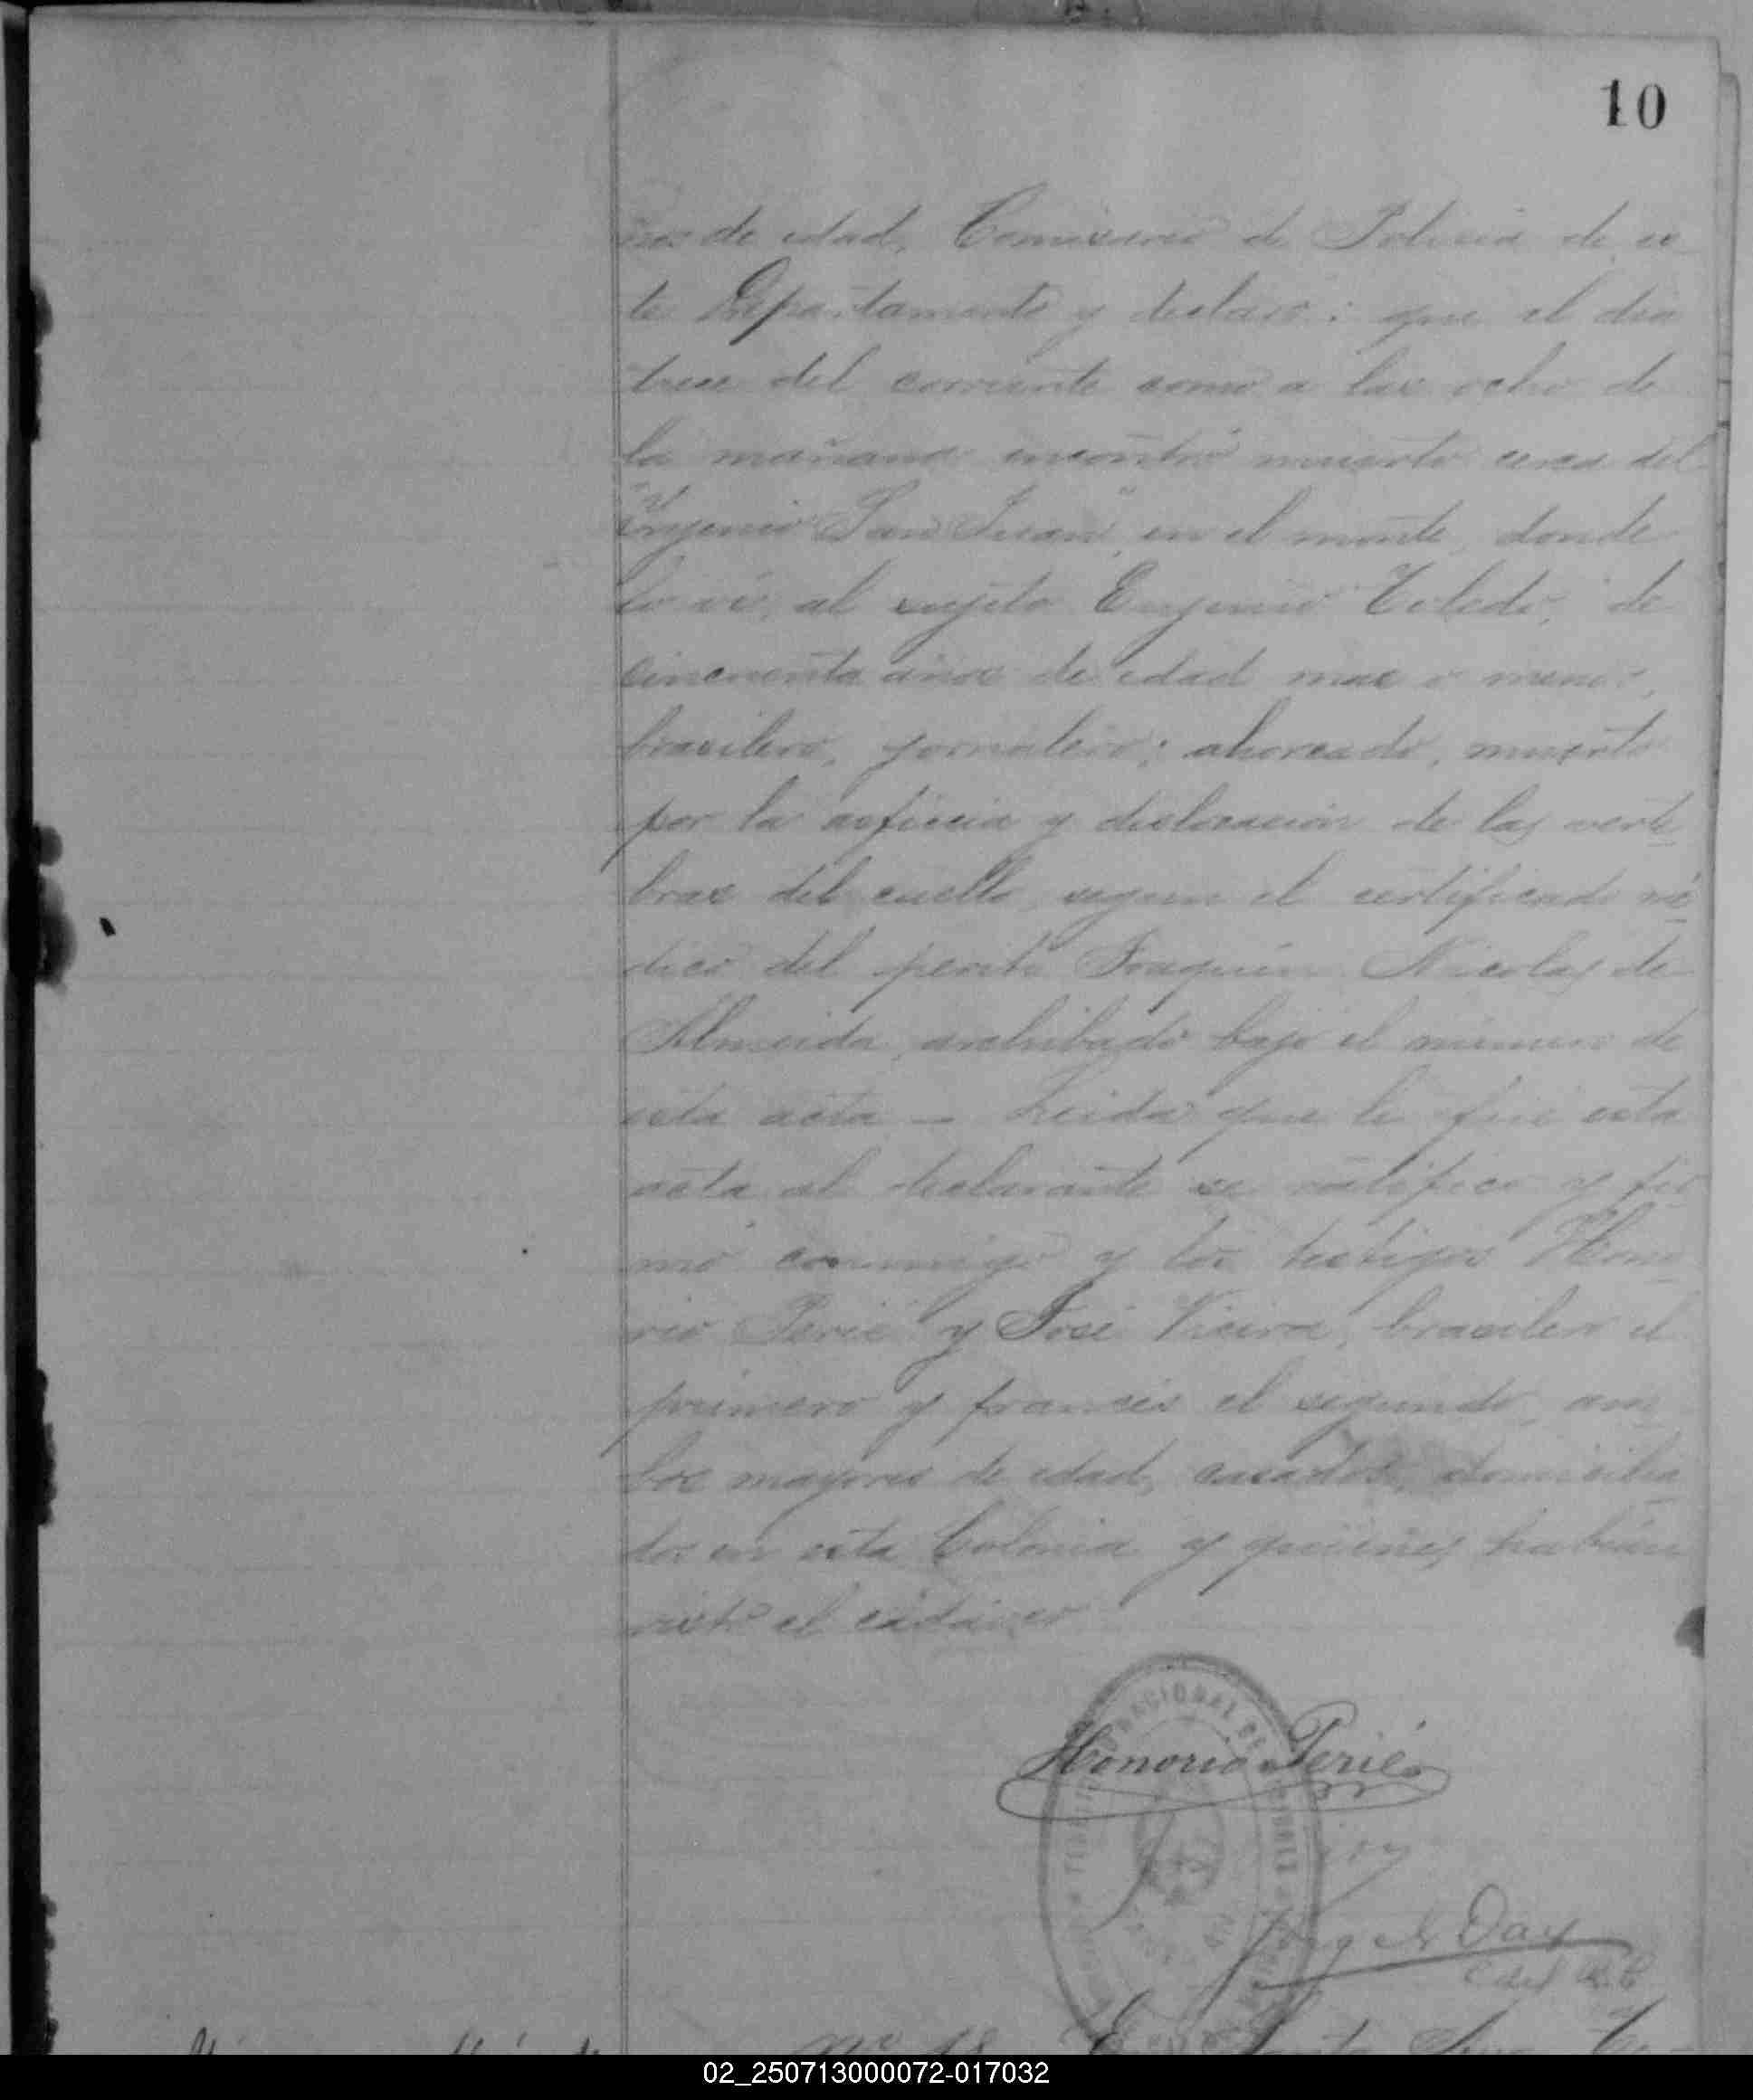 10
ños de edad, Comisario de Policia de es
te Departamento y declaró: que el dia
trece del corriente como a las ocho de
la mañana encontró muerto cerca del
"Ingenio San Juan" en el monte, donde
lo ví, al sujeto Eugenio Toledo, de
cincuenta años de edad mas o menos,
brasilero, jornalero; ahorcado, muerto
por la asficcia y dislocacion de las verte
bras del cuello, segun el certificado mé
dico del perito Joaquin Nicolas de
Almeida, archibado bajo el número de
esta acta — Leida que le fué esta
acta al declarante se ratificó y fir
mó conmigo y los testigos Hono
rio Perié y José Vieira, brasilero el
primero y francés el segundo, am
bos mayores de edad, casados, domicilia
dos en esta Colonia y quienes habian
visto el cadáver
Honorio Perié
NACIONAL DE
Day
Nº 18
02_250713000072-017032